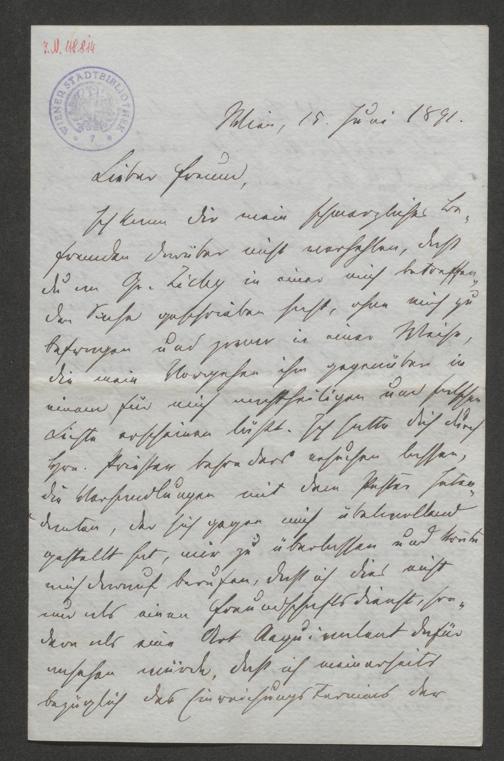 J.N. 118.814
WIENER STADTBIBLIOTHEK
Wien, 15. Juni 1891.
Lieber Freund,
Ich kann dir mein schmerzliches Be-
fremden darüber nicht verhehlen, daß
du an Gr. Zichy in einer mich betreffen-
den Sache geschrieben hast, ohne mich zu
befragen und zwar in einer Weise,
die mein Vorgehen ihm gegenüber in
einem für mich nachtheiligen und falschen
Lichte erscheinen läßt. Ich hatte dich durch
Hrn. Priester besonders ersuchen lassen,
die Verhandlungen mit dem Pester Inten-
danten, der sich gegen mich übelwollend
gestellt hat, mir zu überlassen und konnte
mich darauf berufen, daß ich dies nicht
nur als einen Freundschaftsdienst, son-
dern als eine Art Aequivalent dafür
ansehen würde, daß ich meinerseits
bezüglich des Einreichungstermins der